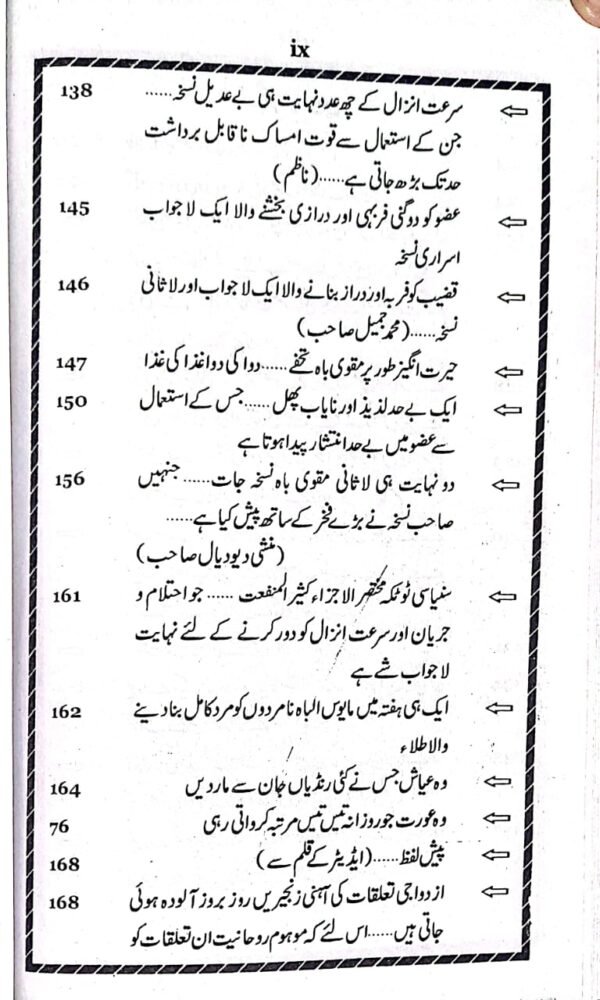 ix
سرعت انزال کے چھ عدد نہایت ہی بے عدیل نسخہ...... 138
جن کے استعمال سے قوت امساک ناقابل برداشت
حد تک بڑھ جاتی ہے......(ناظم)
عضو کو دوگنی فربہی اور درازی بخشنے والا ایک لاجواب 145
اسراری نسخہ
قضیب کو فربہ اور دراز بنانے والا ایک لاجواب اور لاثانی 146
نسخہ......(محمد جمیل صاحب)
حیرت انگیز طور پر مقوی باہ تحفے......دوا کی دوا غذا کی غذا 147
ایک بے حد لذیذ اور نایاب پھل......جس کے استعمال 150
سے عضو میں بے حد انتشار پیدا ہوتا ہے
دو نہایت ہی لاثانی مقوی باہ نسخہ جات......جنہیں 156
صاحب نسخہ نے بڑے فخر کے ساتھ پیش کیا ہے......
(منشی دیودیال صاحب)
سنیاسی ٹوٹکہ مختصر الاجزاء کثیر المنفعت......جو احتلام و 161
جریان اور سرعت انزال کو دور کرنے کے لئے نہایت
لاجواب شے ہے
ایک ہی ہفتہ میں مایوس الباہ نامردوں کو مرد کامل بنا دینے 162
والا طلاء
وہ عیاش جس نے کئی رنڈیاں جان سے مار دیں 164
وہ عورت جو روزانہ تیس تیس مرتبہ کرواتی رہی 76
پیش لفظ......(ایڈیٹر کے قلم سے) 168
ازدواجی تعلقات کی آہنی زنجیریں روز بروز آلودہ ہوئی 168
جاتی ہیں......اس لئے کہ موہوم روحانیت ان تعلقات کو